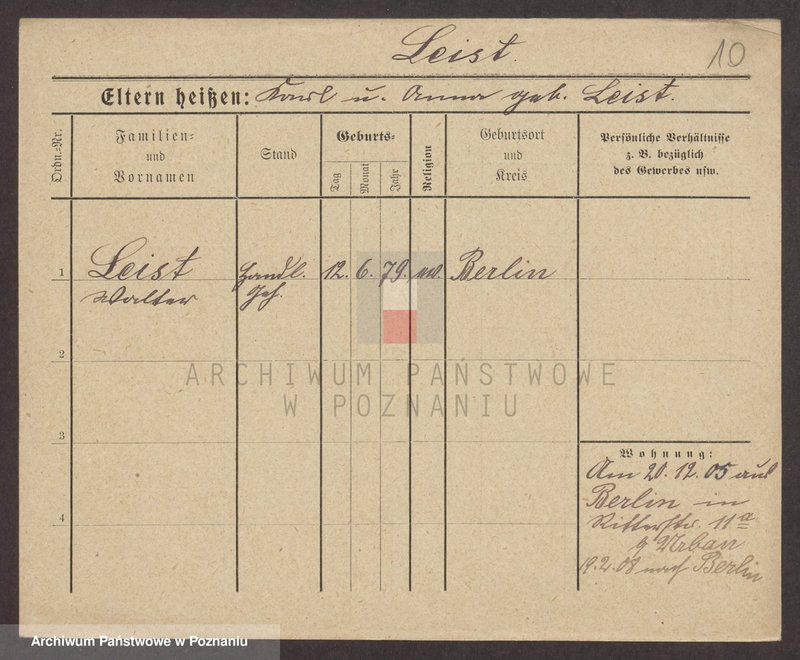 Leist.
10
Eltern heißen: Karl u. Anna geb. Leist.
Ordn.=Nr.
Familien=
und
Vornamen
Stand
Geburts=
Tag
Monat
Jahr
Religion
Geburtsort
und
Kreis
Persönliche Verhältnisse
z. B. bezüglich
des Gewerbes usw.
1 Leist Handl. 12. 6. 79. Berlin
Walter Geh.
2
ARCHIWUM PAŃSTWOWE
W POZNANIU
3
Wohnung:
Am 20.12.05 aus
Berlin in
Ritterstr. 11a
Urban
19.2.08 nach Berlin
4
Archiwum Państwowe w Poznaniu